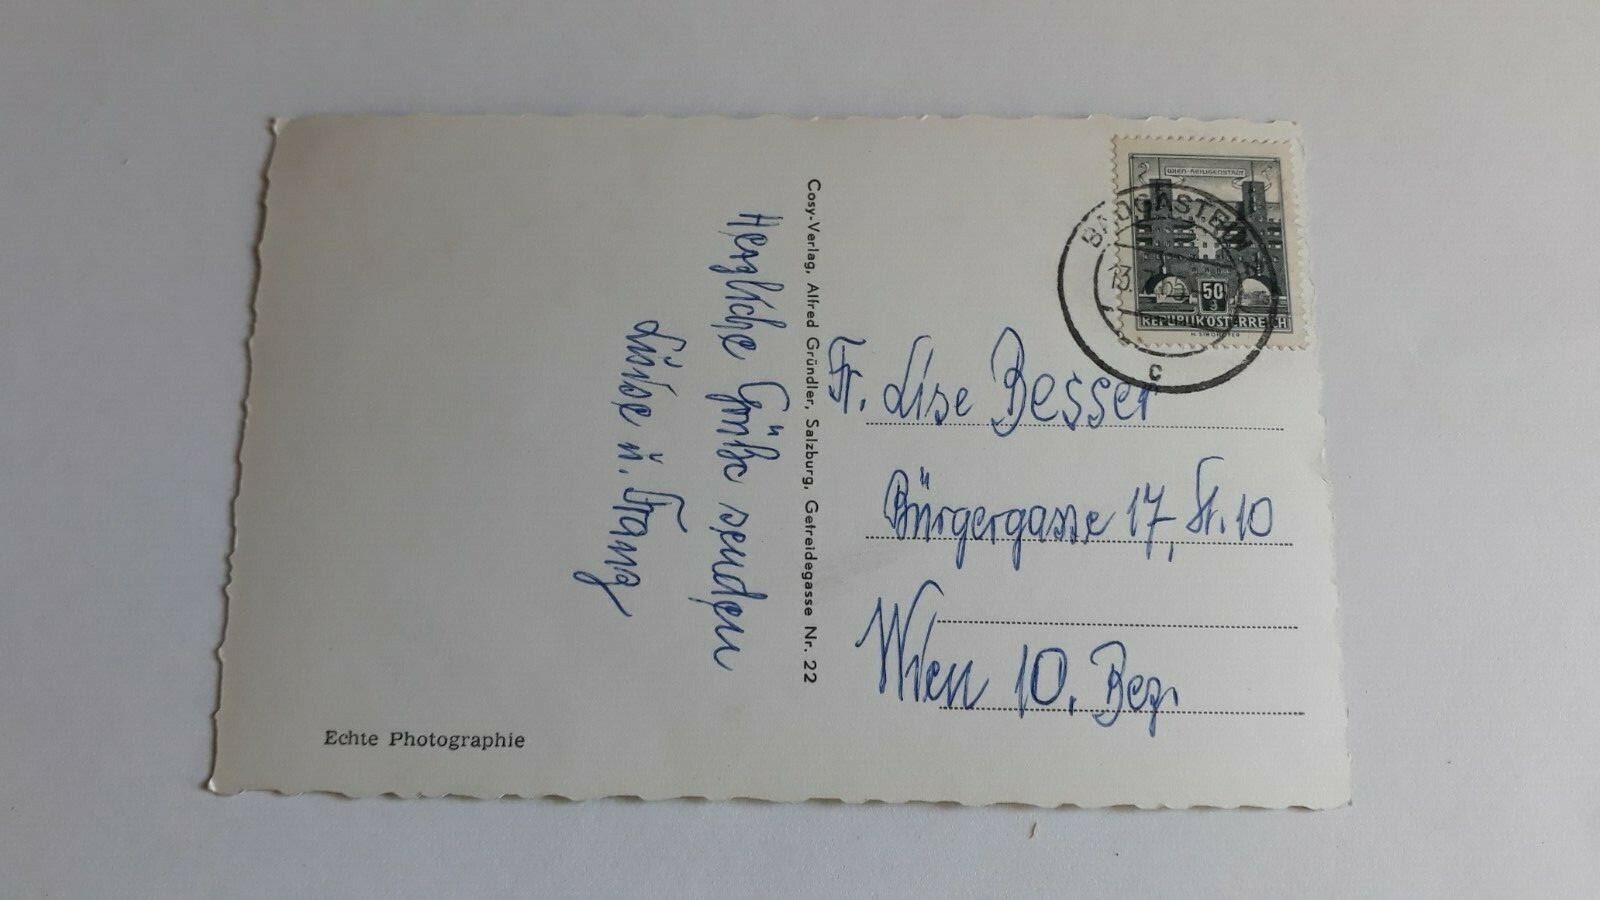 Herzliche Grüße senden
Luise u. Franz
Cosy-Verlag, Alfred Gründler, Salzburg, Getreidegasse Nr. 22
Echte Photographie
WIEN-HEILIGENSTADT
50
REPUBLIK ÖSTERREICH
BADGASTEIN
13.
c
Fr. Lise Besser
Bürgergasse 17, St. 10
Wien 10. Bez.